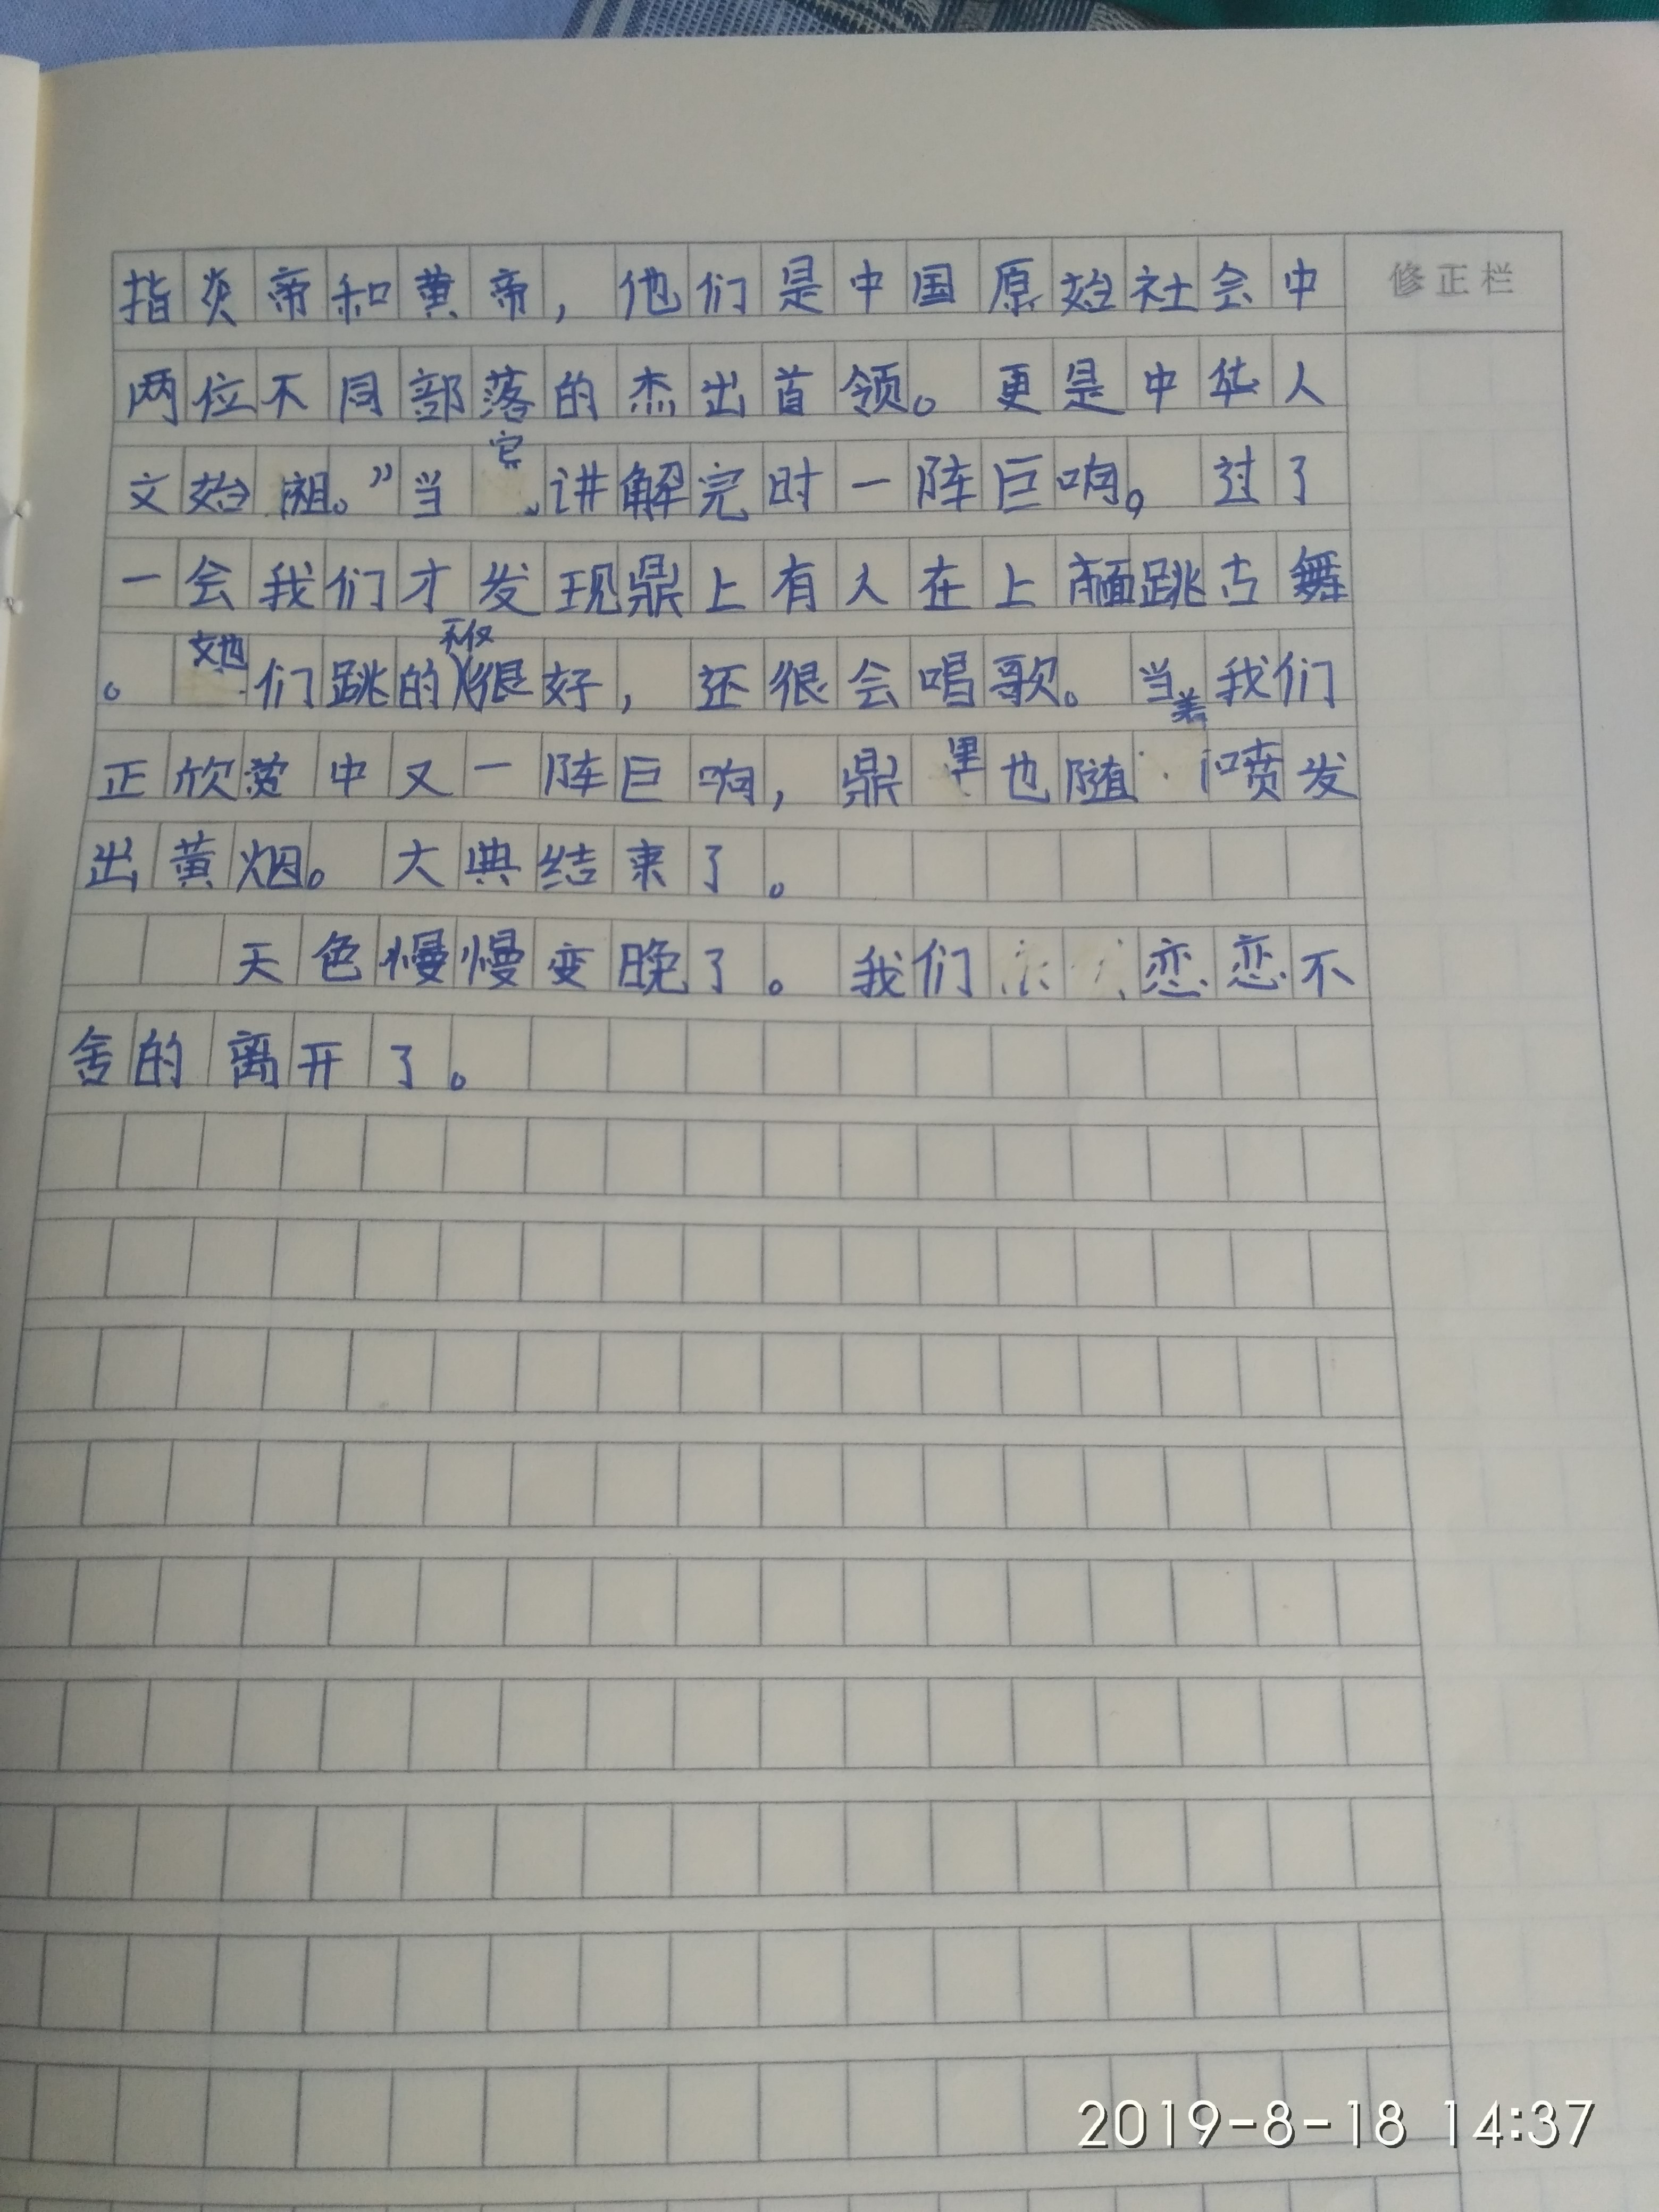 指炎帝和黄帝，他们是中国原始社会中
修正栏
两位不同部落的杰出首领。更是中华人
文始祖。”当官讲解完时一阵巨响。过了
一会我们才发现鼎上有人在上面跳古舞
。她们跳的不仅很好，还很会唱歌。当我们
正欣赏中又一阵巨响，鼎里也随着喷发
出黄烟。大典结束了。
天色慢慢变晚了。我们恋恋不
舍的离开了。
2019-8-18 14:37